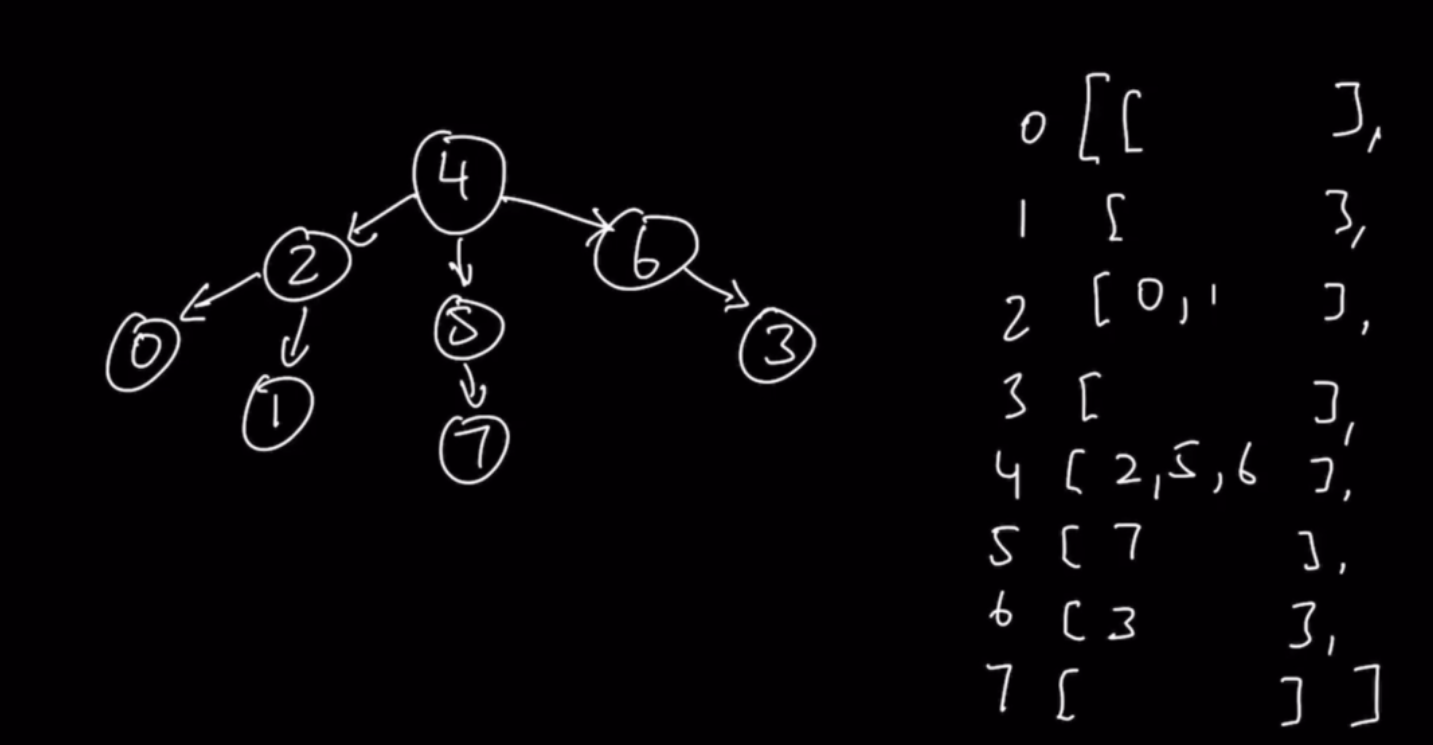 4
2
6
0
5
3
1
7
0 [ [ ],
1 [ ],
2 [ 0, 1 ],
3 [ ],
4 [ 2, 5, 6 ],
5 [ 7 ],
6 [ 3 ],
7 [ ] ]